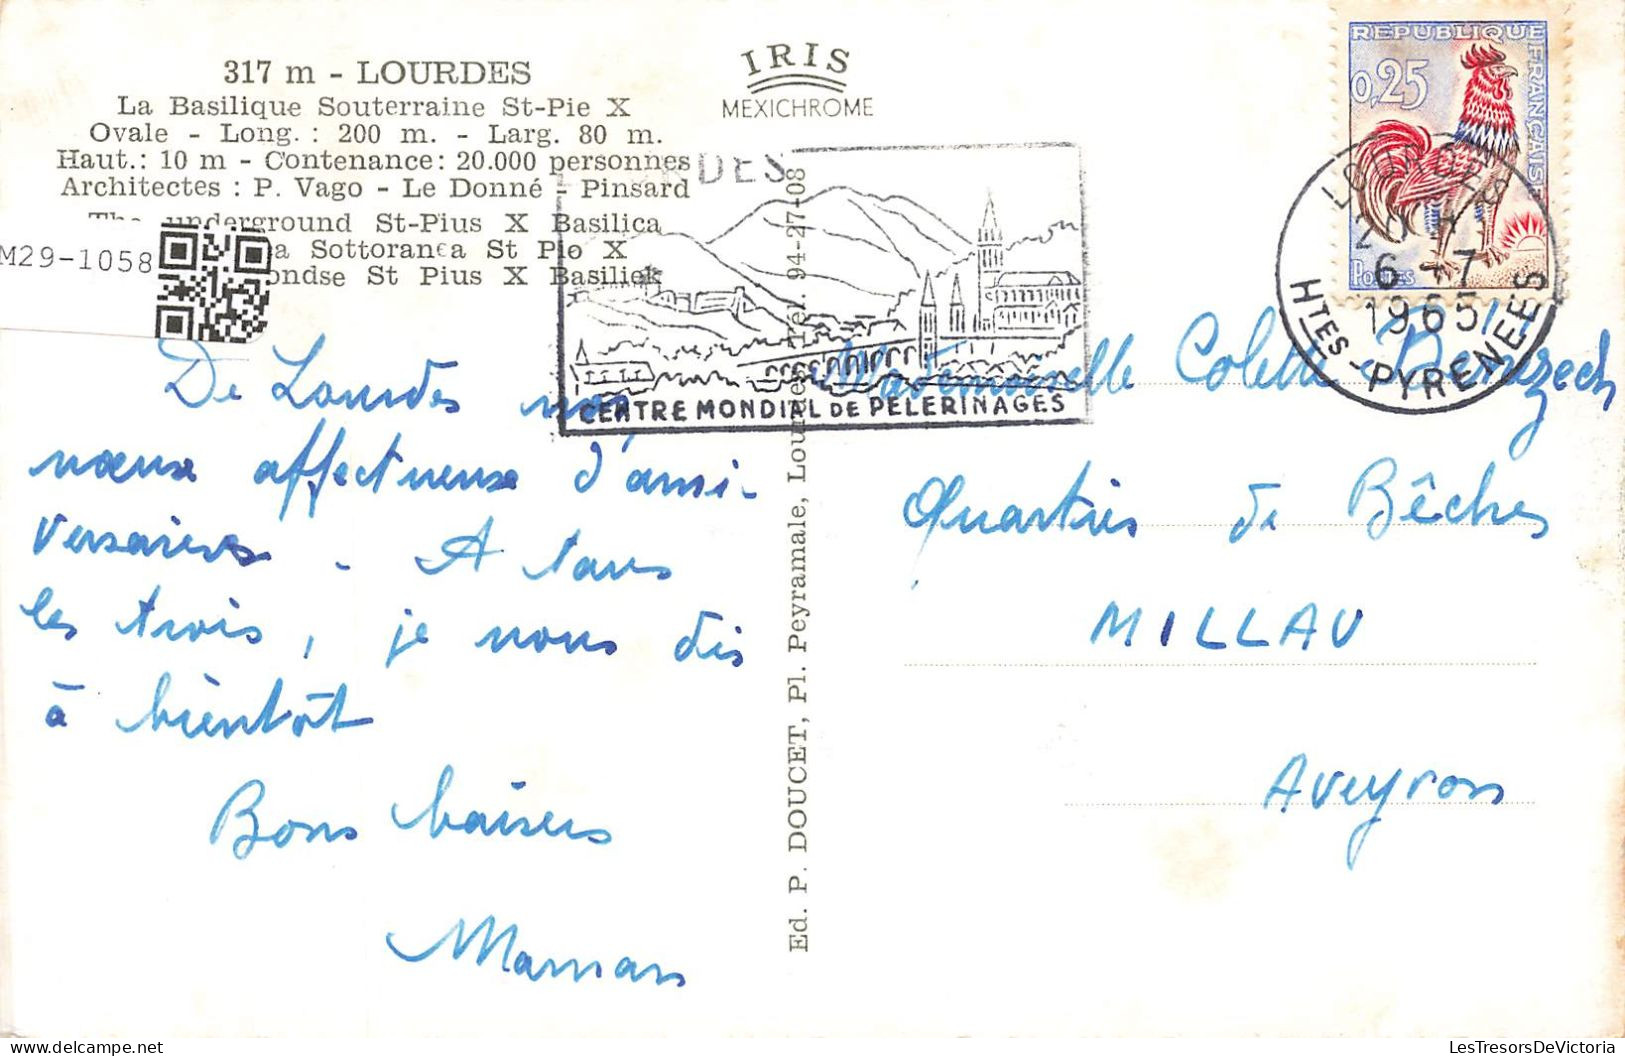 317 m - LOURDES
La Basilique Souterraine St-Pie X
Ovale - Long. : 200 m. - Larg. 80 m.
Haut.: 10 m - Contenance: 20.000 personnes
Architectes : P. Vago - Le Donné - Pinsard
The underground St-Pius X Basilica
a Sottoranea St Pio X
ondse St Pius X Basiliek
M29-1058
IRIS
MEXICHROME
RDES
CENTRE MONDIAL DE PELERINAGES
REPUBLIQUE FRANÇAISE
0,25
POSTES
LOURDES
20 H
6 - 7
1965
HTES - PYRENEES
De Lourdes nos
vœux affectueux d'anni-
versaires. A tous
les trois, je vous dis
à bientôt
Bons baisers
Maman
Ed. P. DOUCET, Pl. Peyramale, Lourdes Tél. 94-27-08
Mademoiselle Colette
Quartier de Bêches
MILLAU
Aveyron
LesTresorsDeVictoria